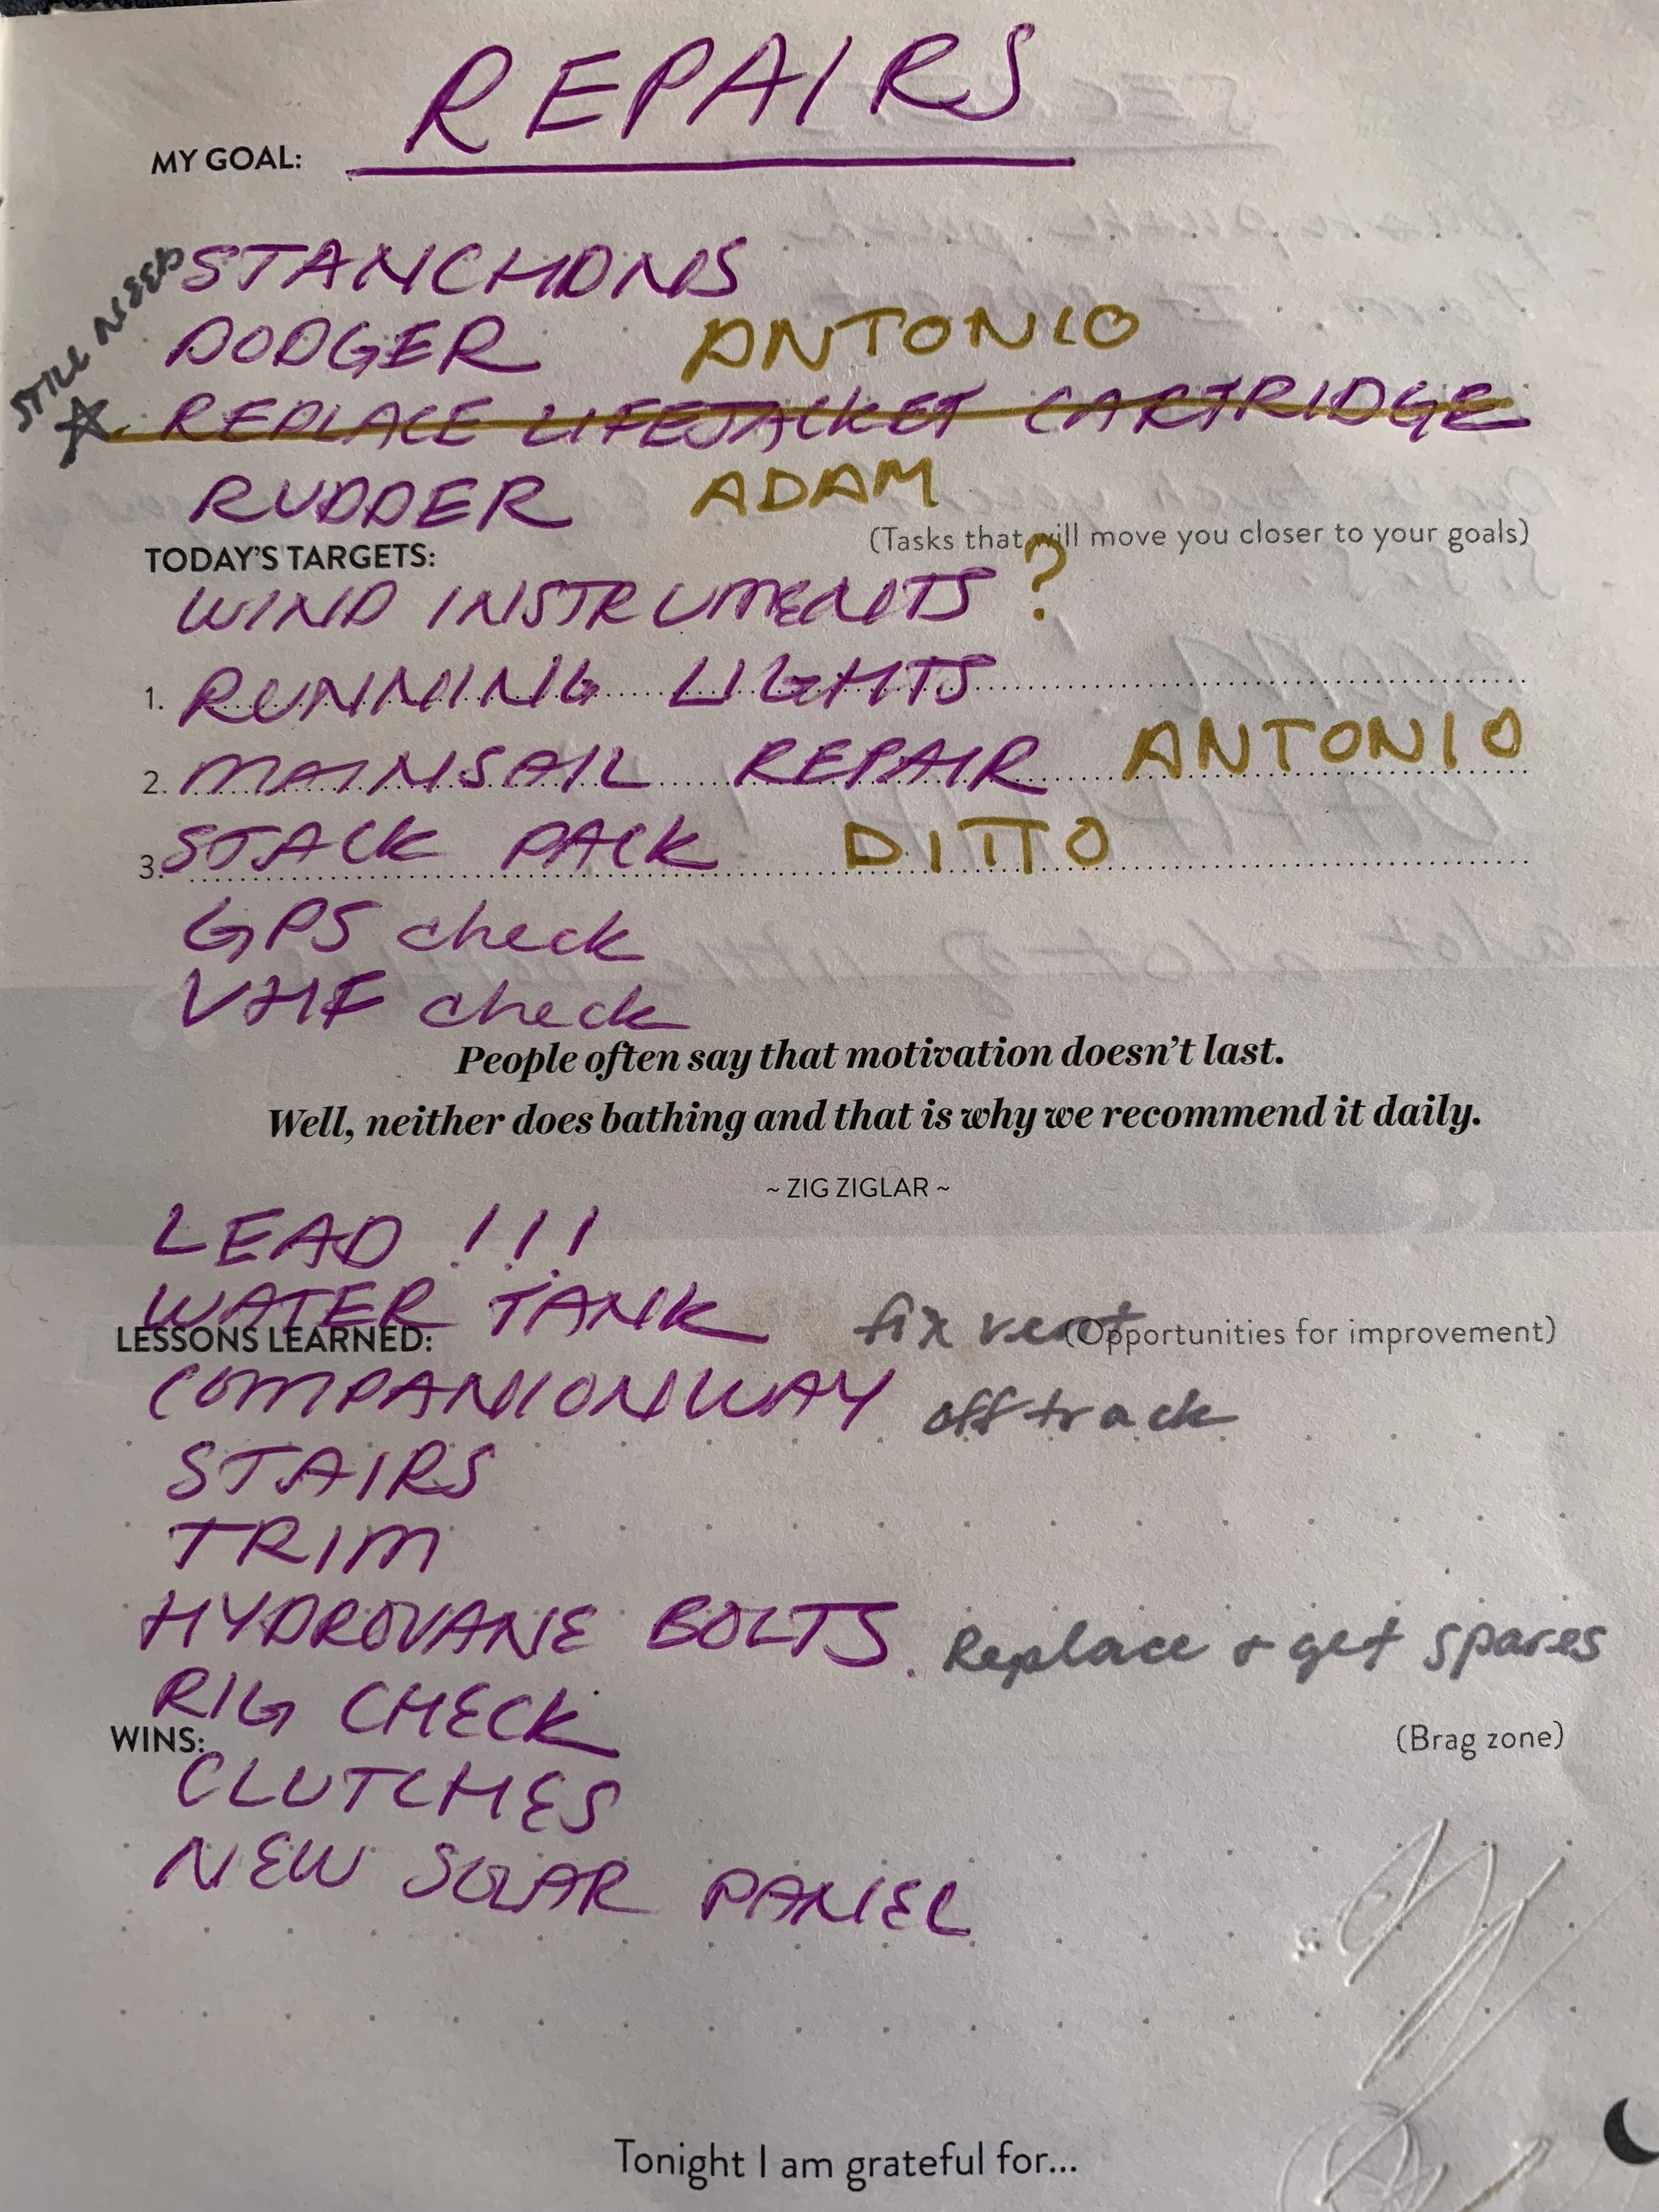 REPAIRS
MY GOAL:
STILL NEED
STANCHONS
DODGER ANTONIO
REPLACE LIFEJACKET CARTRIDGE
RUDDER ADAM
(Tasks that will move you closer to your goals)
TODAY'S TARGETS:
WIND INSTRUMENTS ?
1. RUNNING LIGHTS
2. MAINSAIL REPAIR ANTONIO
3. STACK PACK DITTO
GPS check
VHF check
People often say that motivation doesn't last.
Well, neither does bathing and that is why we recommend it daily.
~ ZIG ZIGLAR ~
LEAD !!!
WATER TANK fix vent
LESSONS LEARNED: (Opportunities for improvement)
COMPANIONWAY off track
STAIRS
TRIM
HYDROVANE BOLTS. Replace + get spares
RIG CHECK
WINS: (Brag zone)
CLUTCHES
NEW SOLAR PANEL
Tonight I am grateful for...